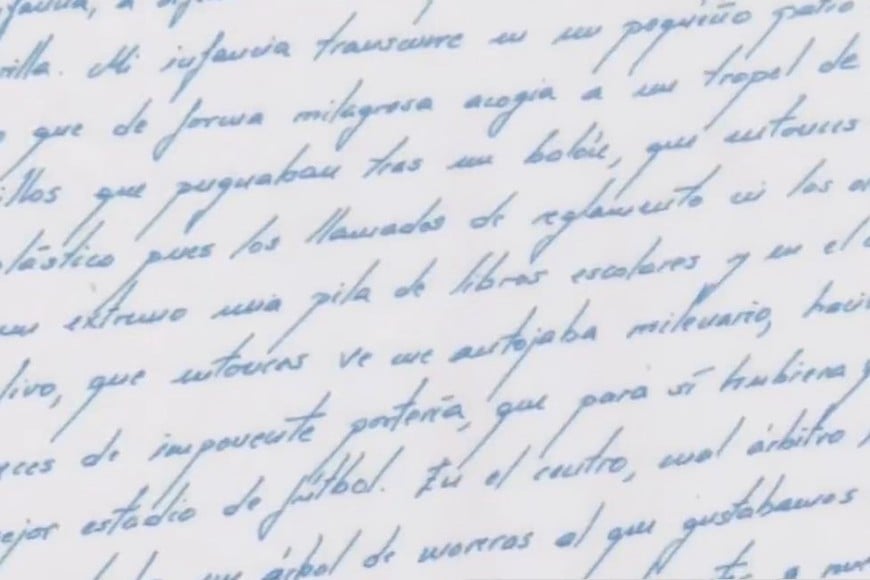 Mi infancia transcurre en un pequeño patio
que de forma milagrosa acogia a un tropel de
illos que pugnaban tras un balón, que entonces
plástico pues los llamados de reglamento ni los
un extremo una pila de libros escolares y en el
livo, que entonces se me antojaba milenario, hací
eces de imponente portería, que para sí hubiera
ejor estadio de fútbol. En el centro, cual árbitro
un árbol de moreras al que gustabamos